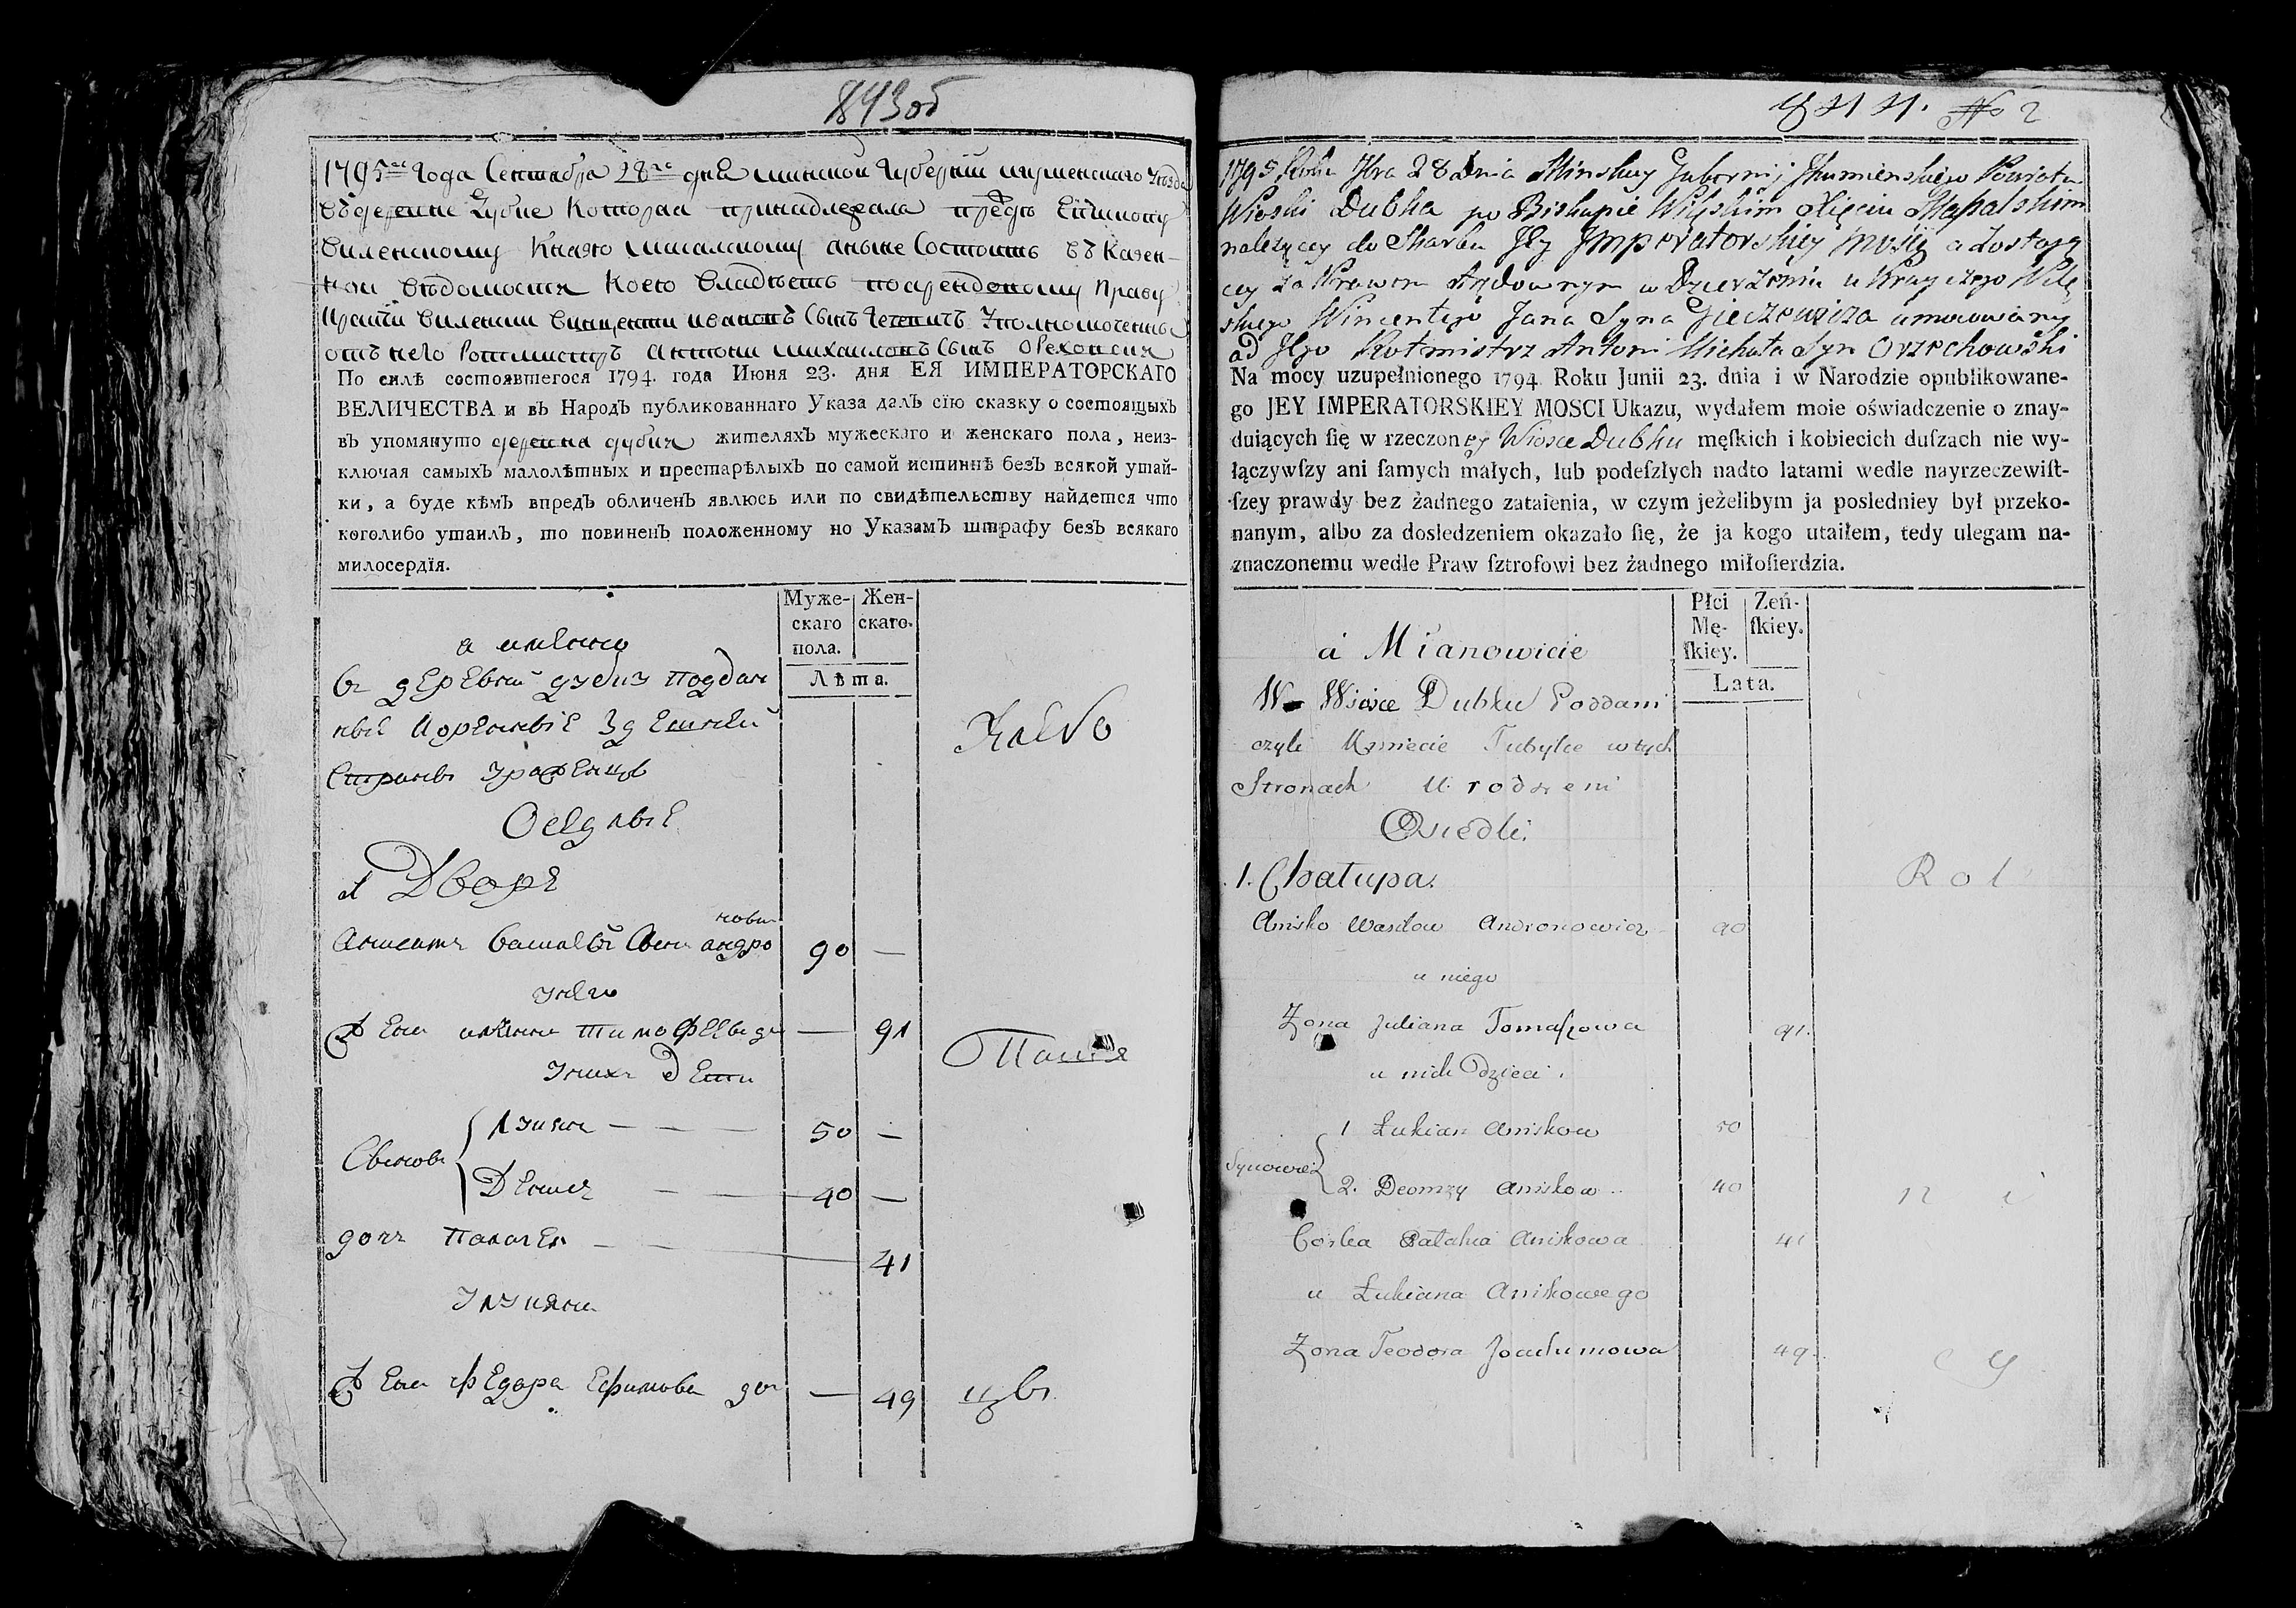 843об
1795го Года Сентября 28го дня минской Губернiи игуменского уезда
въ деревне Дубие Которая принадлежала преждъ Епископу
Виленскому Князю Масалскому аныне Состоитъ въ Казен-
ной ведомости Коего Владѣетъ поарендному Праву
Крайчи Виленски Винценти ивановъ Сынъ Гечевичъ Уполномоченны
отъ него Ротмистръ Антони михайловъ Сынъ Ореховски
По силѣ состоявшегося 1794. года Июня 23. дня ЕЯ ИМПЕРАТОРСКАГО
ВЕЛИЧЕСТВА и въ Народъ публикованнаго Указа далъ сїю сказку о состоящыхъ
въ упомянуто деревни дубия жителяхъ мужескаго и женскаго пола, неиз-
ключая самыхъ малолѣтныхъ и престарѣлыхъ по самой истиннѣ безъ всякой утай-
ки, а буде кѣмъ впредъ обличенъ явлюсь или по свидѣтельству найдется что
коголибо утаилъ, то повиненъ положенному по Указамъ штрафу безъ всякаго
милосердїя.
Муже-скаго пола.
Жен-скаго.
Лѣта.
а имянно
въ деревни дубия поддан
ные
Стране урожденцы
Оседлые
1 Дворъ
новъ
Анисимъ Василiевъ Сынъ андро 90 —
унего
жена тимофеева дочь — 91
унихъ дети
Сыновья
Лукянъ — — — 50 —
Демидъ — — 40 —
дочь Палагея — — 41
Улукяна
жена федора Ефимова доч — 49
844. № 2
1795 Roku 7bra 28 Dnia Minskiey Gubernij Ihumienskiego Powiatu
Wioski Dubka po Biskupie Wilenskim Xięciu Massalskim
należącey do Skarbu Jey Imperatorskiey Mości a zostaią
cey za Prawem Arędownym w Dzierżeniu u Krayczego Wile
skiego Wincentego Jana Syna Gieczewicza umocowany
od Jego Rotmistrz Antoni Michała Syn Orzechowski
Na mocy uzupełnionego 1794. Roku Junii 23. dnia i w Narodzie opublikowane-
go JEY IMPERATORSKIEY MOSCI Ukazu, wydałem moie oświadczenie o znay-
duiących ſię w rzeczoney Wiosce Dubku męſkich i kobiecich duſzach nie wy-
łączywſzy ani ſamych małych, lub podeſzłych nadto latami wedle nayrzeczewiſt-
ſzey prawdy bez żadnego zataienia, w czym jeżelibym ja posledniey był przeko-
nanym, albo za dosledzeniem okazało ſię, że ja kogo utaiłem, tedy ulegam na-
znaczonemu wedle Praw ſztrofowi bez żadnego miłoſierdzia.
Płci Mę-ſkiey.
Zeń-ſkiey.
Lata.
a Mianowicie
W Wiosce Dubku Poddani
czyli Kmiecie Tubylce w tych
Stronach Urodzeni
Osiedli.
1. Chałupa. Rol
Anisko Wasilow Andronowicz 90
u niego
Zona Juliana Tomaszowa 91.
u nich Dzieci.
Synowie
1 Łukian Aniskow 50
2. Deomzy Aniskow 40 n i
Corka Pałahia Aniskowa 41
u Łukiana Aniskowego
Zona Teodora Joachimowa 49. c y